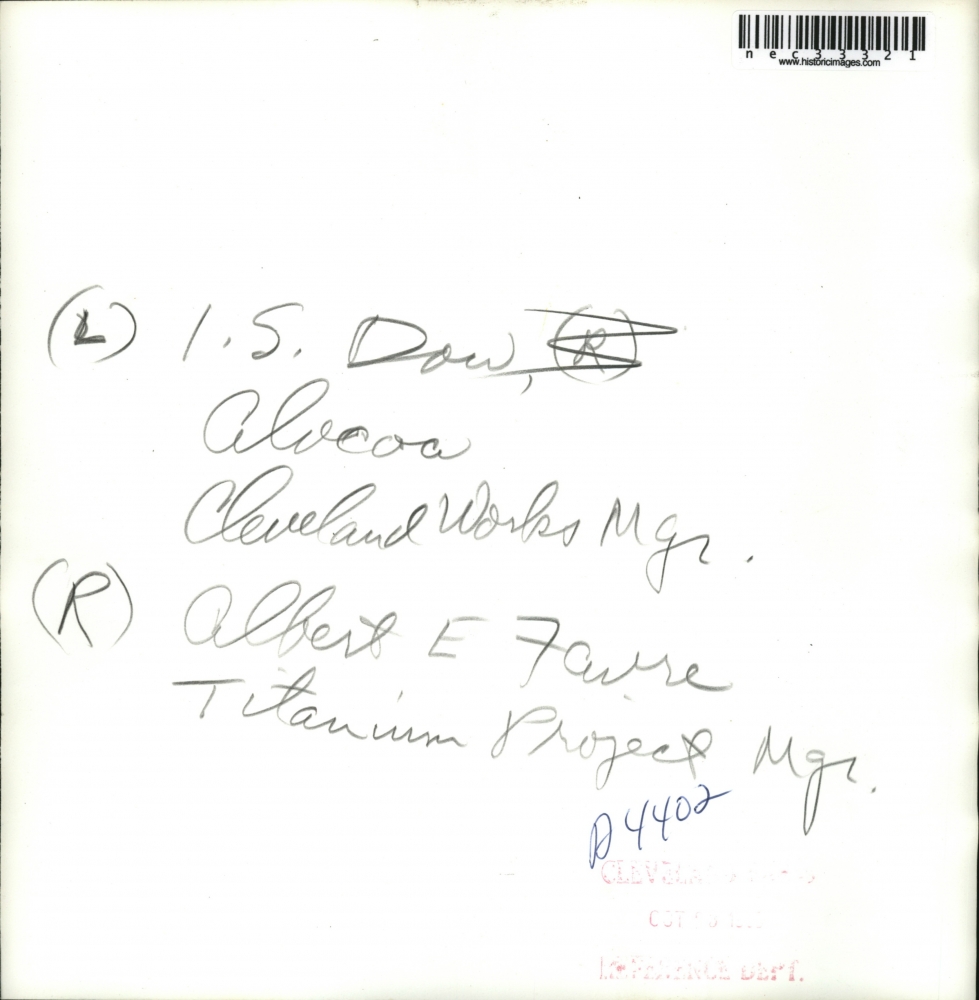 nec33321
www.historicimages.com
(L) I.S. Dow, (R)
Alocoa
Cleveland Works Mgr.
(R) Albert E Favre
Titanium Project Mgr.
D4402
CLEVELAND
OCT
REFERENCE DEPT.